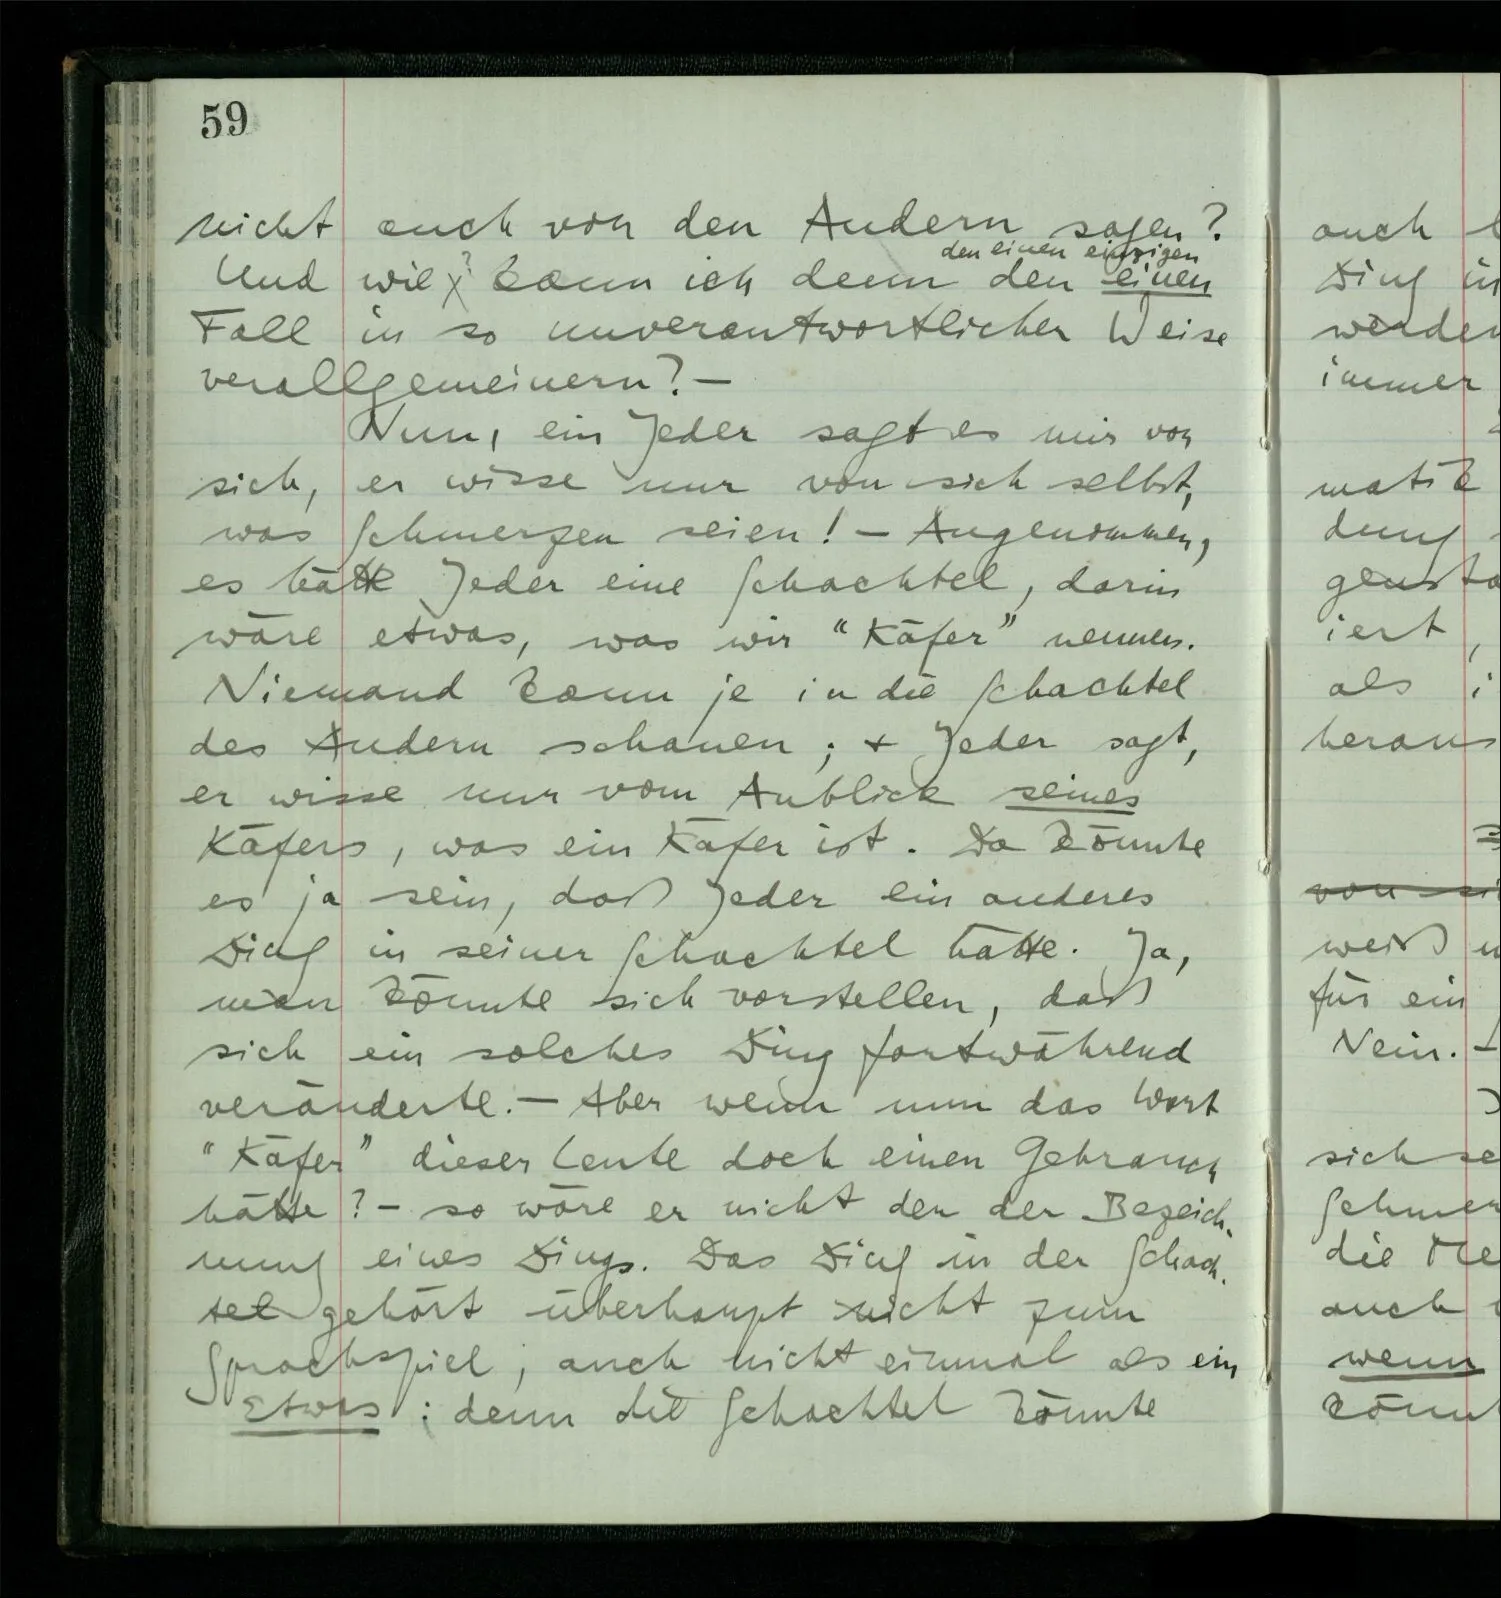 59
nicht auch von den Andern sagen?
den einen einzigen
Und wie kann ich denn den einen
Fall in so unverantwortlicher Weise
verallgemeinern? –
Nun, ein Jeder sagt es mir von
sich, er wisse nur von sich selbst,
was Schmerzen seien! – Angenommen,
es hätte Jeder eine Schachtel, darin
wäre etwas, was wir "Käfer" nennen.
Niemand kann je in die Schachtel
des Andern schauen; + Jeder sagt,
er wisse nur vom Anblick seines
Käfers, was ein Käfer ist. Da könnte
es ja sein, daß Jeder ein anderes
Ding in seiner Schachtel hätte. Ja,
man könnte sich vorstellen, daß
sich ein solches Ding fortwährend
veränderte. – Aber wenn nun das Wort
"Käfer" dieser Leute doch einen Gebrauch
hätte? – so wäre er nicht der der Bezeich-
nung eines Dings. Das Ding in der Schach-
tel gehört überhaupt nicht zum
Sprachspiel; auch nicht einmal als ein
Etwas: denn die Schachtel könnte
auch
Ding
werden
immer
matik
dung
iert,
als
heraus
von
weiß
für ein
Nein. –
sich se
Schmer
die Me
auch
wenn
könnt